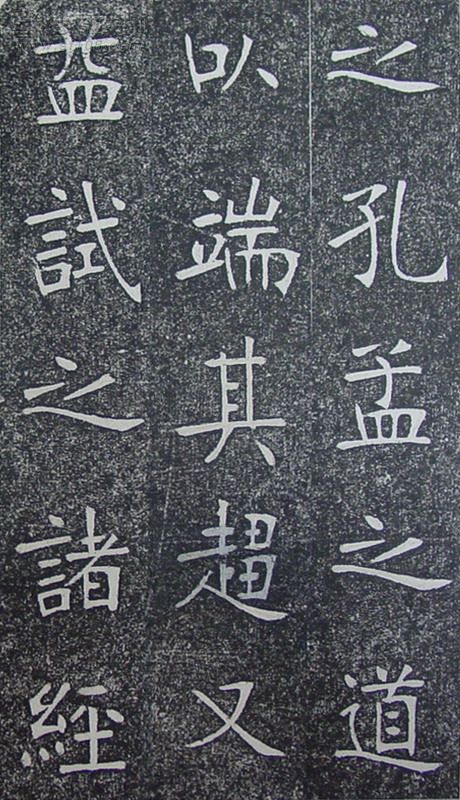 之孔孟之道
以端其趨又
蓋試之諸經